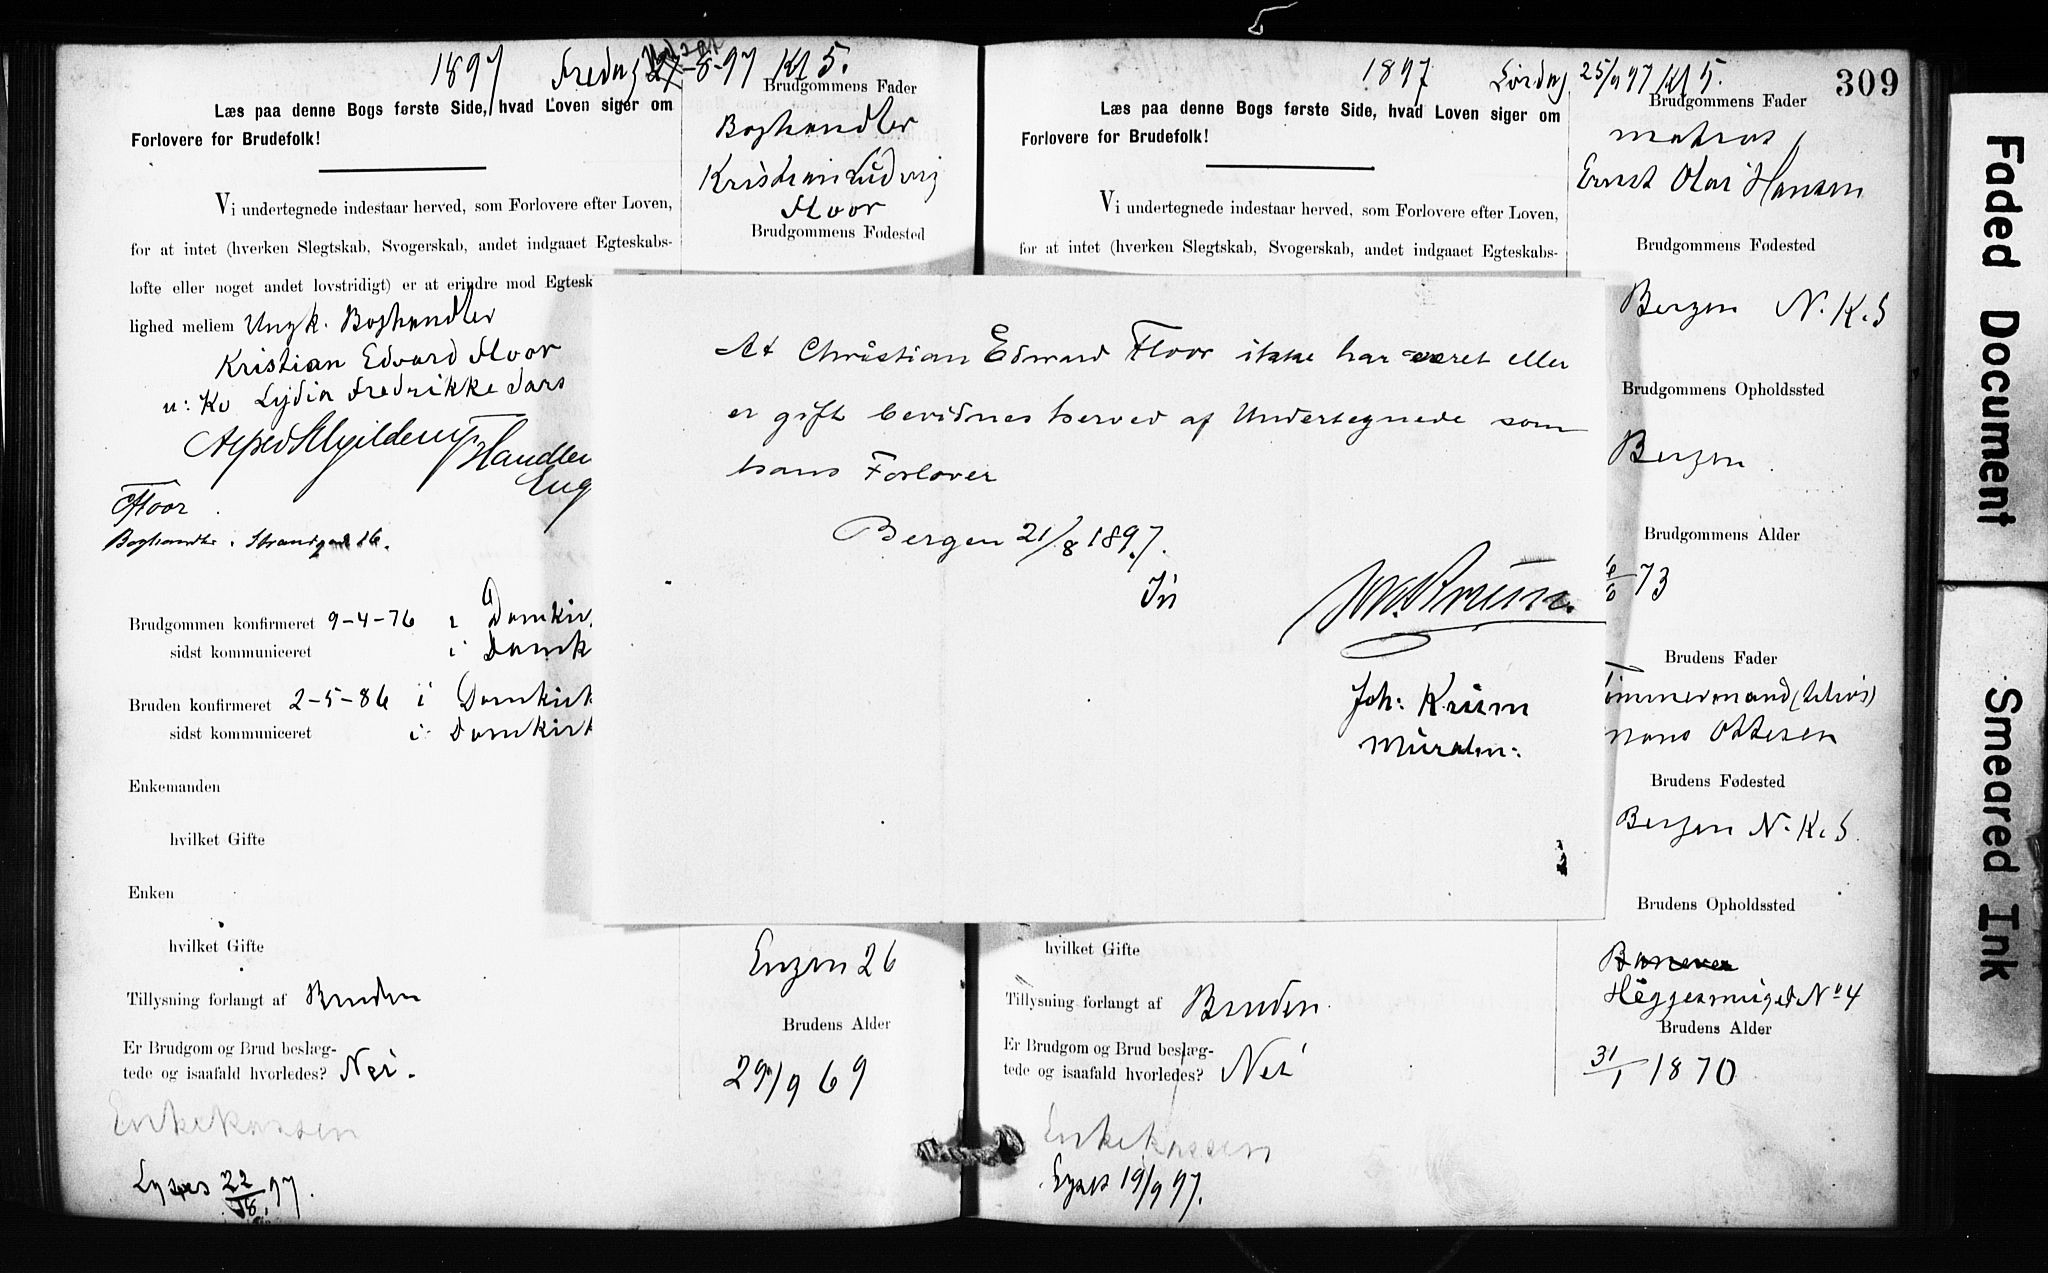 1897 Fredag 27-8-97 Kl 5.
Læs paa denne Bogs første Side, hvad Loven siger om
Forlovere for Brudefolk!
Vi undertegnede indestaar herved, som Forlovere efter Loven,
for at intet (hverken Slegtskab, Svogerskab, andet indgaaet Egteskabs-
løfte eller noget andet lovstridigt) er at erindre mod Egtesk
lighed mellem Ungk. Boghandler
Kristian Edvard Floor
u: Kv Lydia Fredrikke Sars
Handler
Eug
Floor
Boghandler. Strandgad 16.
Brudgommen konfirmeret 9-4-76 i Domkir.
sidst kommuniceret i Domk
Bruden konfirmeret 2-5-86 i Domkirk
sidst kommuniceret i Domkirk
Enkemanden
hvilket Gifte
Enken
hvilket Gifte
Tillysning forlangt af Bruden
Er Brudgom og Brud beslæg-
tede og isaafald hvorledes? Nei.
Enkekassen
Lyses 22/8 97.
Brudgommens Fader
Boghandler
Kristian Ludvig
Floor
Brudgommens Fødested
Engen 26
Brudens Alder
29/9 69
At Christian Edvard Floor ikke har været eller
er gift bevidnes herved af Undertegnede som
hans Forlover
Bergen 21/8 1897.
Joh: Krüm
Muralm:
1897 Lördag 25/9 97 Kl 5.
309
Læs paa denne Bogs første Side, hvad Loven siger om
Forlovere for Brudefolk!
Vi undertegnede indestaar herved, som Forlovere efter Loven,
for at intet (hverken Slegtskab, Svogerskab, andet indgaaet Egteskabs-
hvilket Gifte
Tillysning forlangt af Bruden.
Er Brudgom og Brud beslæg-
tede og isaafald hvorledes? Nei
Enkekassen
Lyses 19/9 97.
Brudgommens Fader
matros
Ernst Olai Hansen
Brudgommens Fødested
Bergen N. K. S
Brudgommens Opholdssted
Bergen.
Brudgommens Alder
73
Brudens Fader
ømmermand
Ottesen
Brudens Fødested
Bergen N. K. S.
Brudens Opholdssted
Heggesmuget No 4
Brudens Alder
31/1 1870
Faded Document
Smeared Ink